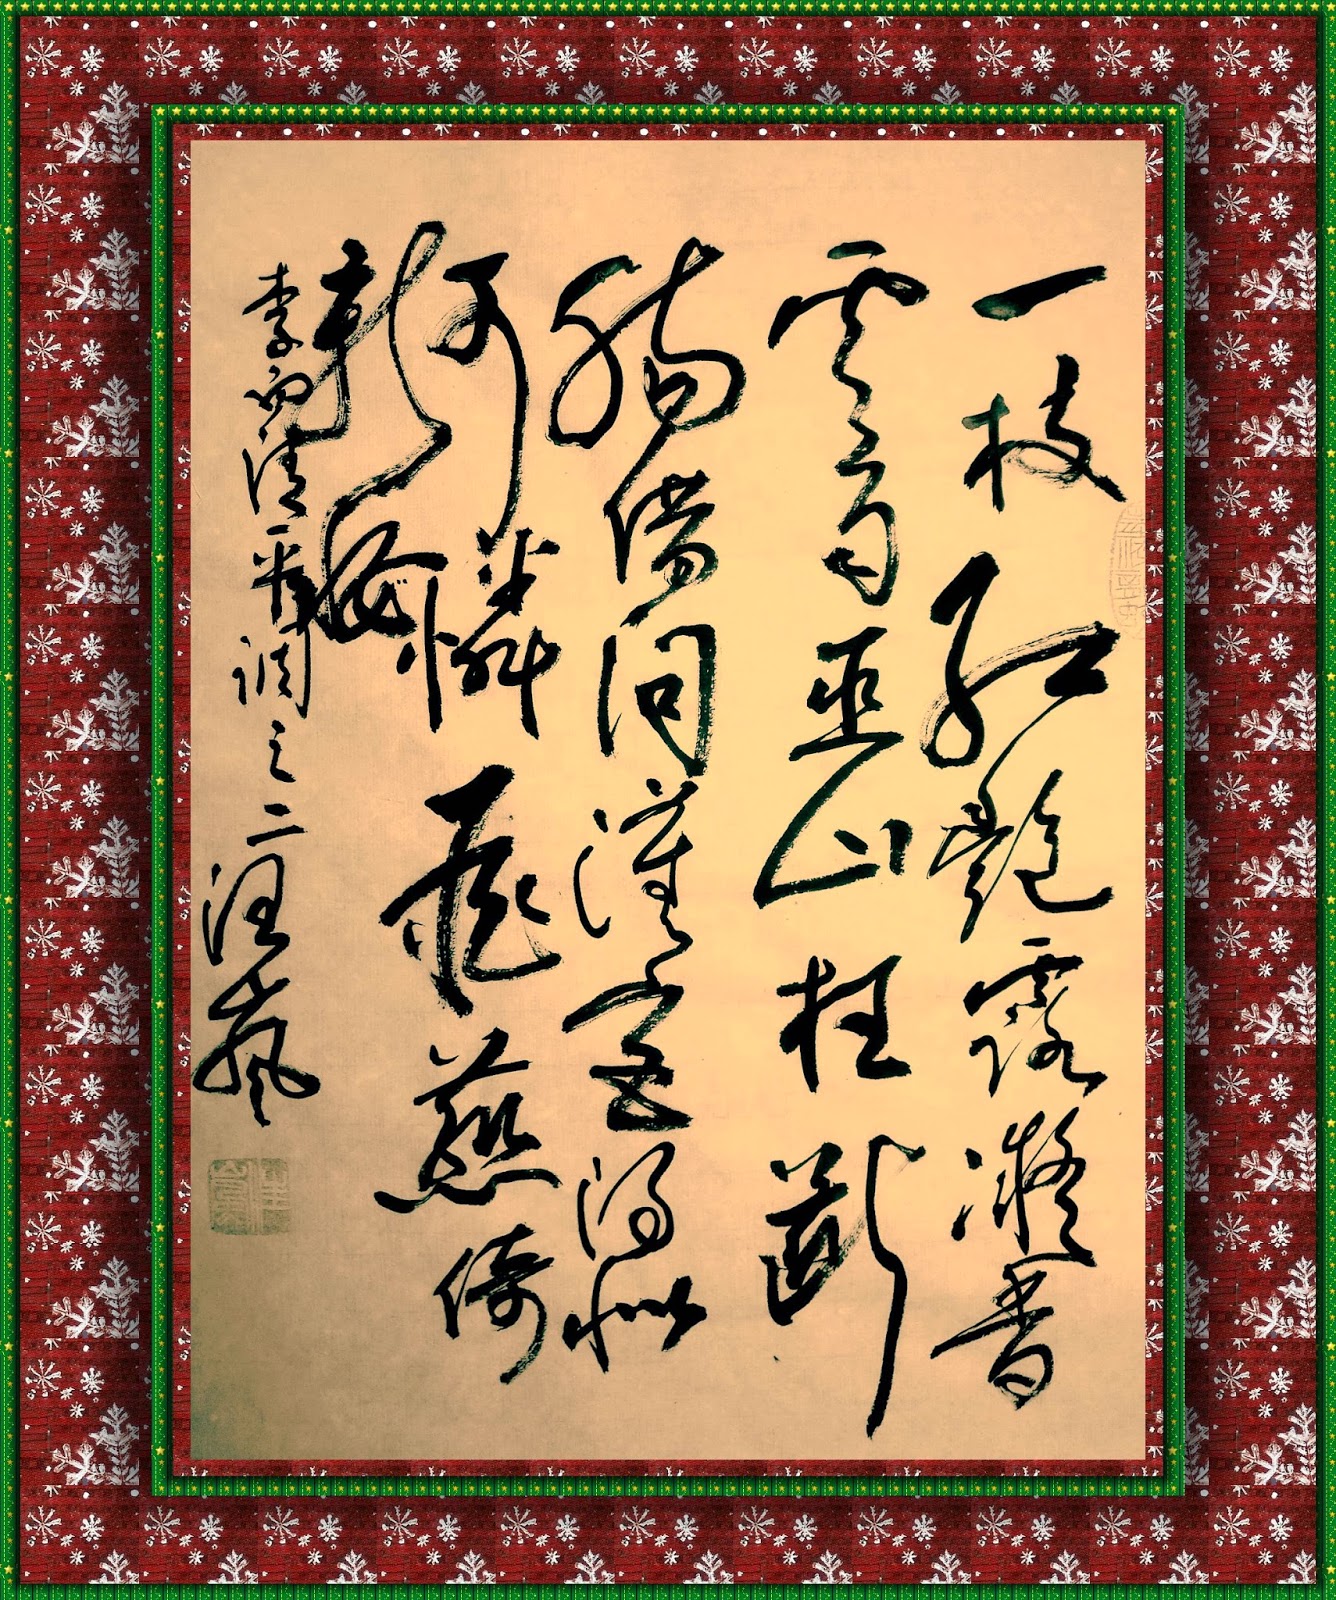 一枝紅艷露凝香
雲雨巫山枉斷
腸借問漢宮得似
可憐飛燕倚
新妝
李白清平調之二 嵐